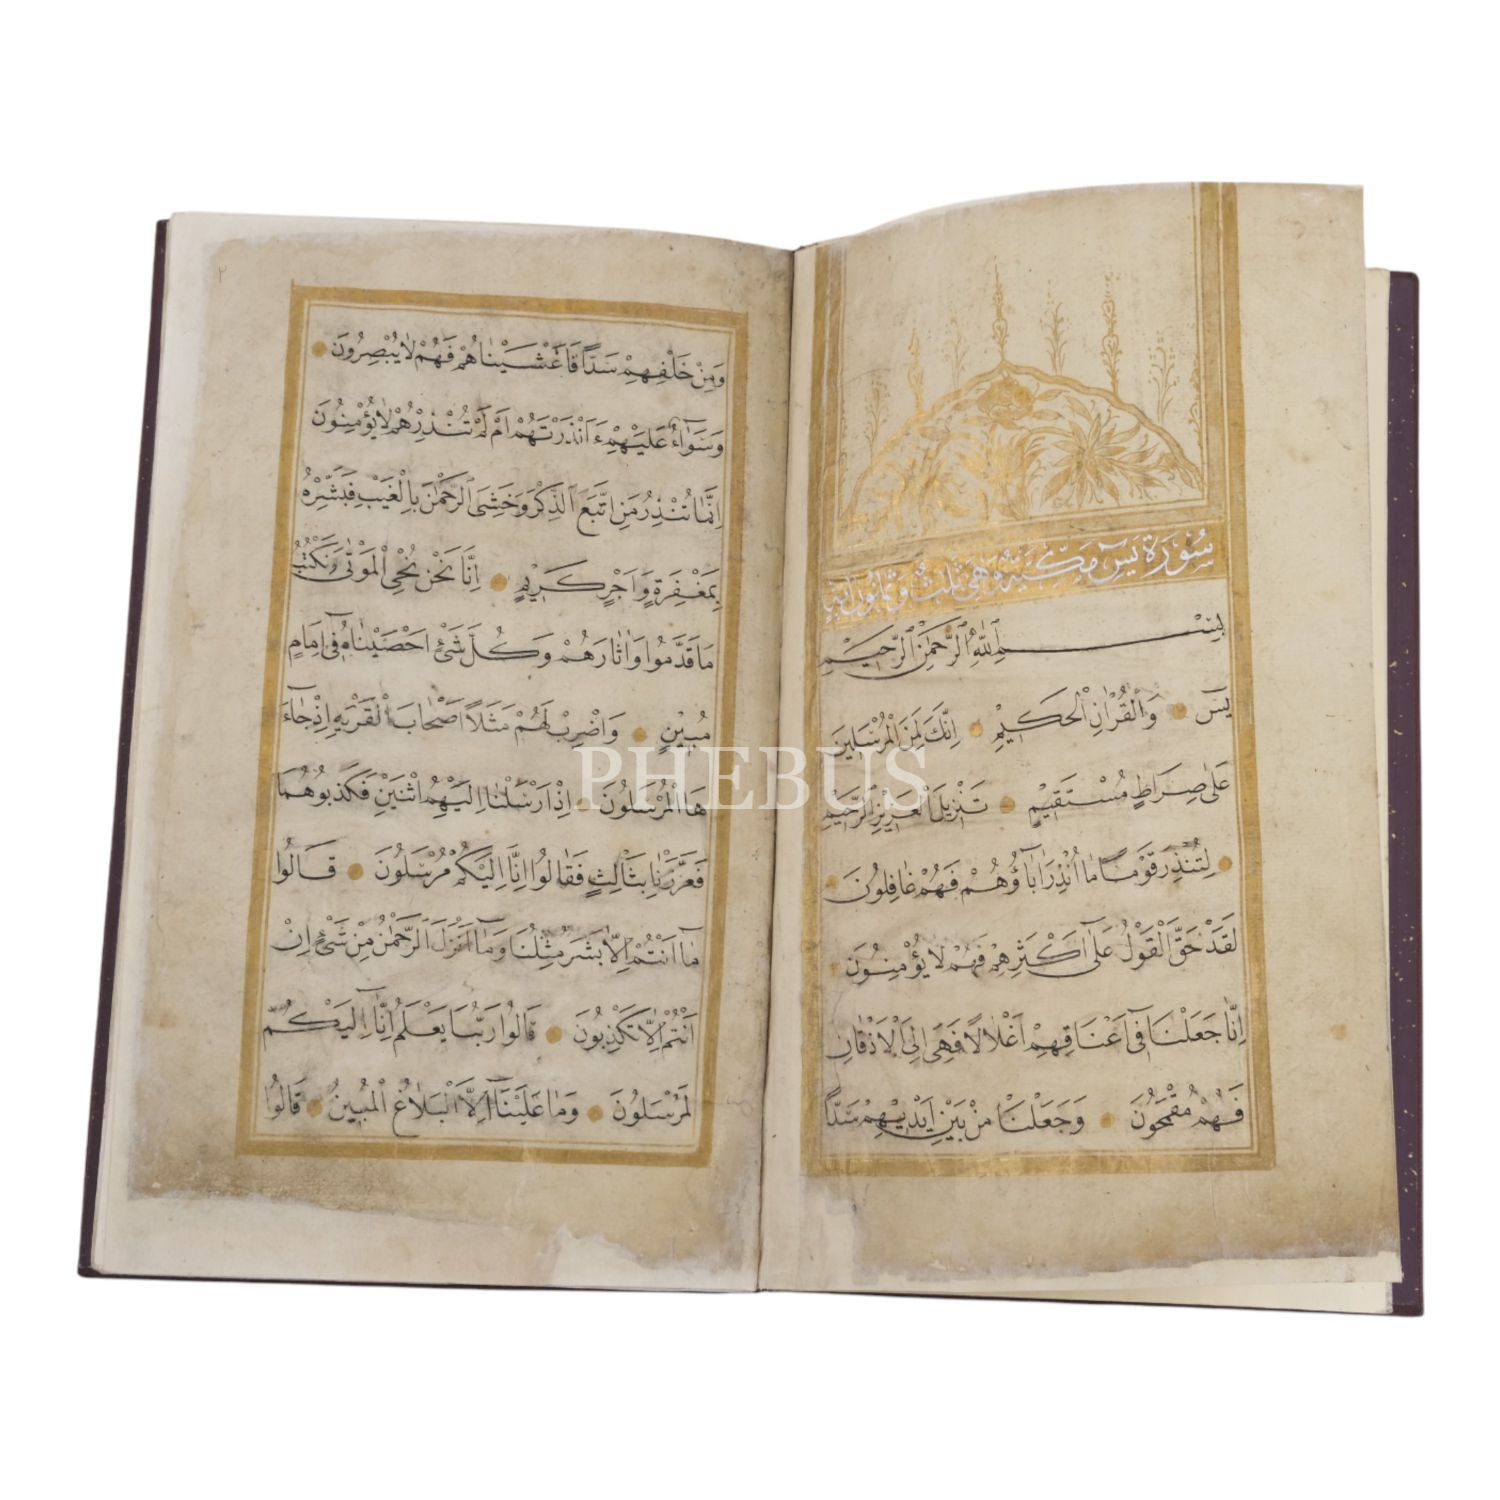 سُورَةُ يٰسٓ مَكِّيَّةٌ وَهِيَ ثَلٰثٌ وَثَمَانُونَ اٰيَةً
بِسْمِ اللّٰهِ الرَّحْمٰنِ الرَّحِيمِ
يٰسٓ وَالْقُرْاٰنِ الْحَكِيْمِ اِنَّكَ لَمِنَ الْمُرْسَلِينَ
عَلٰى صِرَاطٍ مُسْتَقِيْمٍ تَنْزِيلَ الْعَزِيزِ الرَّحِيْمِ
لِتُنْذِرَ قَوْمًا مَا اُنْذِرَ اٰبَاؤُهُمْ فَهُمْ غَافِلُونَ
لَقَدْ حَقَّ الْقَوْلُ عَلٰٓى اَكْثَرِهِمْ فَهُمْ لَا يُؤْمِنُونَ
اِنَّا جَعَلْنَا فٓى اَعْنَاقِهِمْ اَغْلَالًا فَهِىَ اِلَى الْاَذْقَانِ
فَهُمْ مُقْمَحُونَ وَجَعَلْنَا مِنْ بَيْنِ اَيْدِيهِمْ سَدًّا
٢
وَمِنْ خَلْفِهِمْ سَدًّا فَاَغْشَيْنَاهُمْ فَهُمْ لَا يُبْصِرُونَ
وَسَوَٓاءٌ عَلَيْهِمْ ءَاَنْذَرْتَهُمْ اَمْ لَمْ تُنْذِرْهُمْ لَا يُؤْمِنُونَ
اِنَّمَا تُنْذِرُ مَنِ اتَّبَعَ الذِّكْرَ وَخَشِىَ الرَّحْمٰنَ بِالْغَيْبِ فَبَشِّرْهُ
بِمَغْفِرَةٍ وَاَجْرٍ كَرِيْمٍ اِنَّا نَحْنُ نُحْىِ الْمَوْتٰى وَنَكْتُبُ
مَا قَدَّمُوا وَاٰثَارَهُمْ وَكُلَّ شَىْءٍ اَحْصَيْنَاهُ فٓى اِمَامٍ
مُبِيْنٍ وَاضْرِبْ لَهُمْ مَثَلًا اَصْحَابَ الْقَرْيَةِ اِذْ جَٓاءَ
هَا الْمُرْسَلُونَ اِذْ اَرْسَلْنَا اِلَيْهِمُ اثْنَيْنِ فَكَذَّبُوهُمَا
فَعَزَّزْنَا بِثَالِثٍ فَقَالُوا اِنَّا اِلَيْكُمْ مُرْسَلُونَ قَالُوا
مَا اَنْتُمْ اِلَّا بَشَرٌ مِثْلُنَا وَمَا اَنْزَلَ الرَّحْمٰنُ مِنْ شَىْءٍ اِنْ
اَنْتُمْ اِلَّا تَكْذِبُونَ قَالُوا رَبُّنَا يَعْلَمُ اِنَّا اِلَيْكُمْ
لَمُرْسَلُونَ وَمَا عَلَيْنَا اِلَّا الْبَلَاغُ الْمُبِينُ قَالُوا
PHEBUS